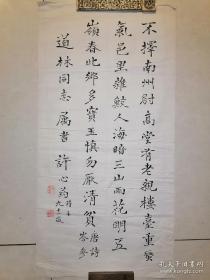 不擇南州尉高堂有老親樓臺重蜃
氣邑里雜鮫人海暗三山雨花明五
嶺春此鄉多寶玉慎勿厭清貧 唐詩
岑參
道林同志属書 許心